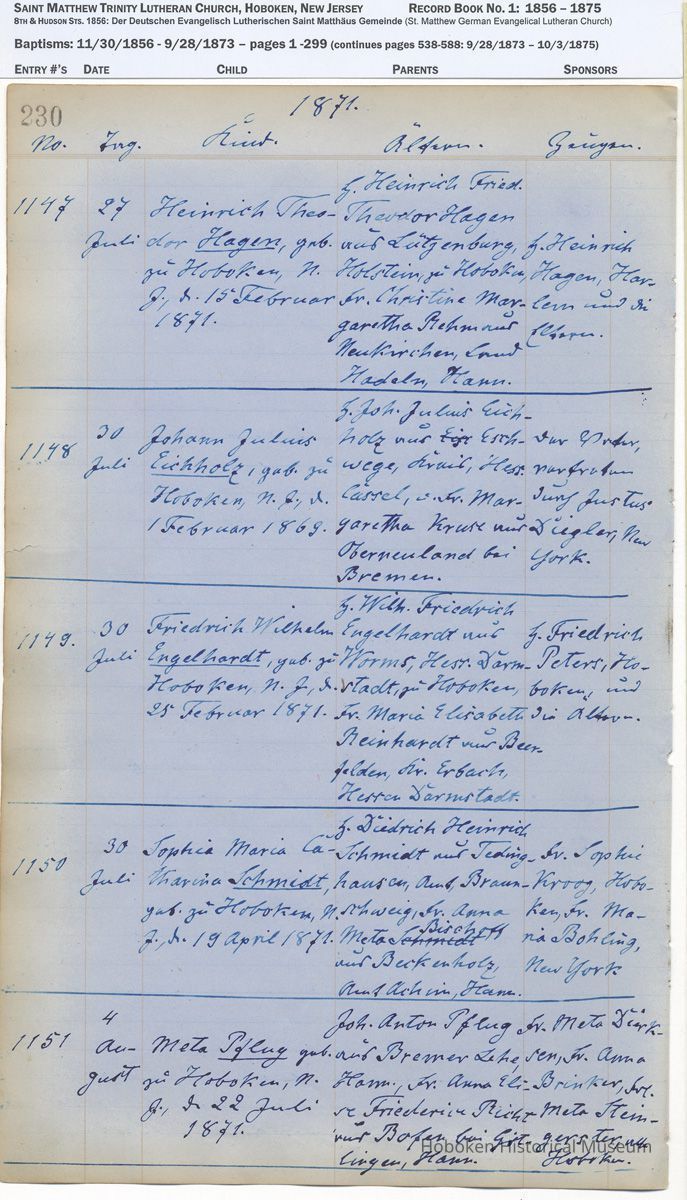 SAINT MATTHEW TRINITY LUTHERAN CHURCH, HOBOKEN, NEW JERSEY RECORD BOOK NO. 1: 1856 – 1875
8TH & HUDSON STS. 1856: Der Deutschen Evangelisch Lutherischen Saint Matthäus Gemeinde (St. Matthew German Evangelical Lutheran Church)
Baptisms: 11/30/1856 - 9/28/1873 – pages 1 -299 (continues pages 538-588: 9/28/1873 – 10/3/1875)
ENTRY #'S DATE CHILD PARENTS SPONSORS
230 1871.
No. Tag. Kind. Ältern. Zeugen.
1147
27
Juli
Heinrich Theo-
dor Hagen, geb.
zu Hoboken, N.
J., d. 15 Februar
1871.
H. Heinrich Fried.
Theodor Hagen
aus Lütjenburg,
Holstein, zu Hoboken,
Fr. Christine Mar-
garetha Rehm aus
Neukirchen, Land
Hadeln, Hann.
H. Heinrich
Hagen, Har-
lem und die
Eltern.
1148
30
Juli
Johann Julius
Eichholz, geb. zu
Hoboken, N. J., d.
1 Februar 1869.
H. Joh. Julius Eich-
holz aus Esch-
wege, Kreis, Hess.
Cassel, u. Fr. Mar-
garetha Kruse aus
Oberneuland bei
Bremen.
Der Vater,
vertreten
durch Justus
Ziegler, New
York.
1149.
30
Juli
Friedrich Wilhelm
Engelhardt, geb. zu
Hoboken, N. J., d.
25 Februar 1871.
H. Wilh. Friedrich
Engelhardt aus
Worms, Hess. Darm-
stadt, zu Hoboken,
Fr. Maria Elisabeth
Reinhardt aus Beer-
felden, Kr. Erbach,
Hessen Darmstadt.
H. Friedrich
Peters, Ho-
boken, und
die Ältern.
1150
30
Juli
Sophia Maria Ca-
tharina Schmidt,
geb. zu Hoboken, N.
J., d. 19 April 1871.
H. Diedrich Heinrich
Schmidt aus Teding-
hausen, Amt, Braun-
schweig, Fr. Anna
Bischoff
Meta Schmidt
aus Beckenholz,
Amt Achim, Hann.
Fr. Sophie
Kroog, Hobo-
ken, Fr. Ma-
ria Bohling,
New York
1151
4
Au-
gust
Meta Pflug geb.
zu Hoboken, N.
J., d. 22 Juli
1871.
Joh. Anton Pflug
aus Bremer Lehe,
Hann., Fr. Anna Eli-
se Friederich
aus bei
lingen, Hann.
Fr. Meta
Fr. Anna
Brinker, Frl.
Meta Stein-
Hoboken.
Hoboken Historical Museum